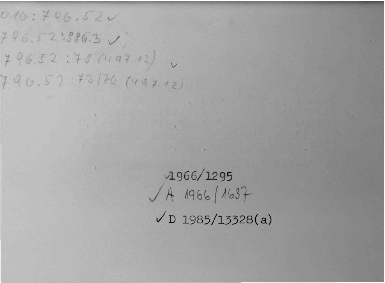 016:796.52✓
796.52:886.3 ✓
796.52:78(497.12) ✓
796.52:73/76 (497.12)
✓1966/1295
✓A 1966/1637
✓D 1985/13328(a)